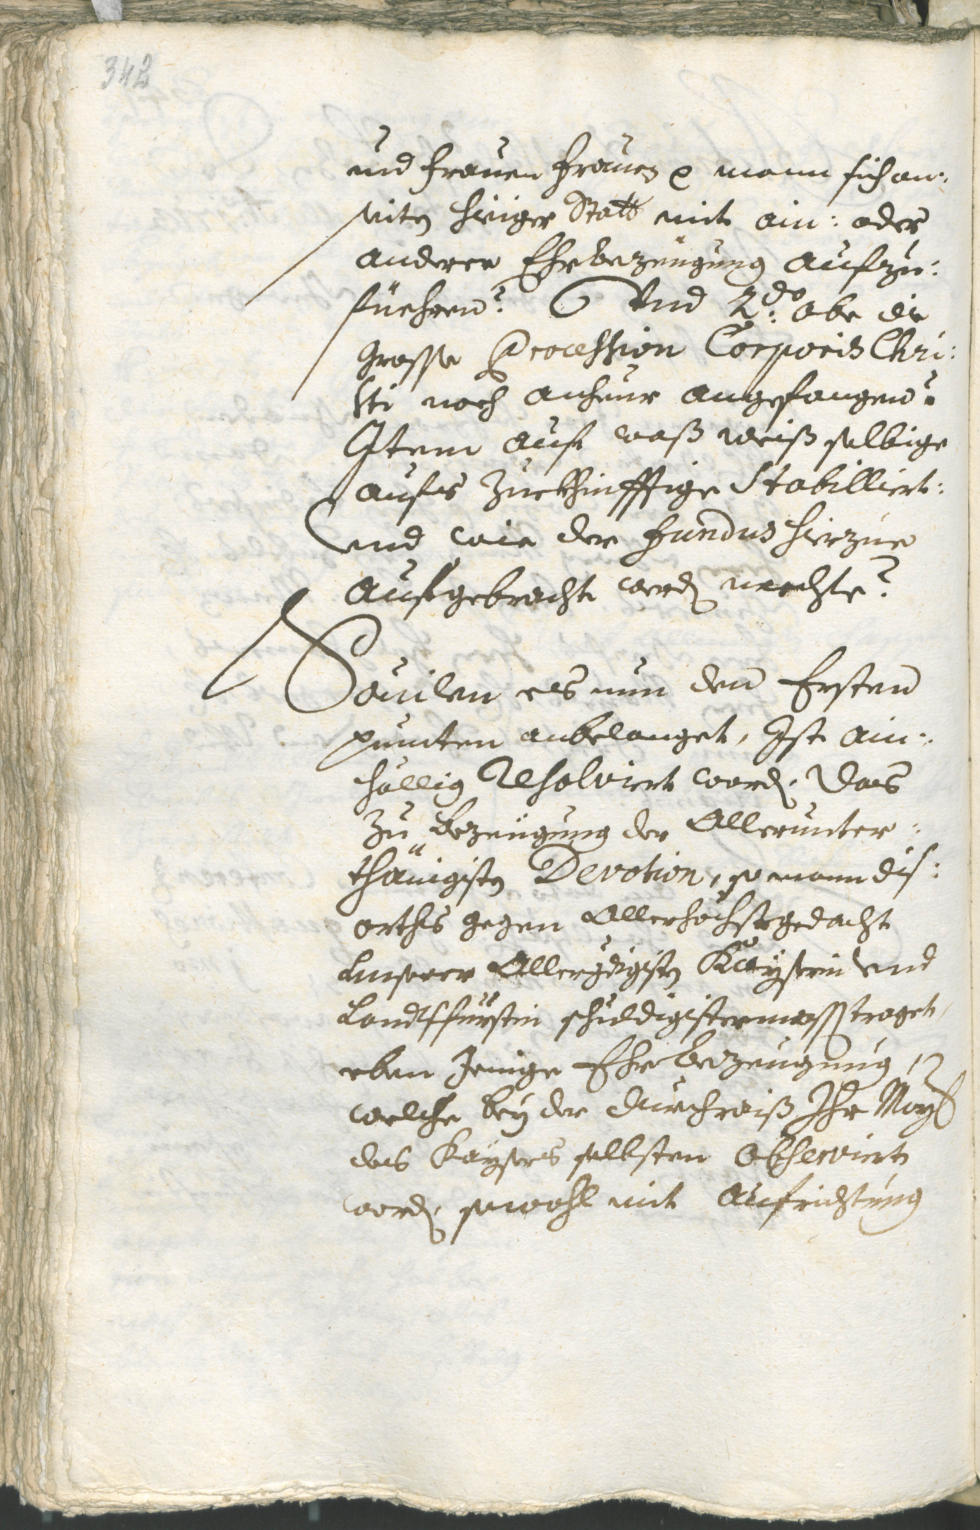 342
und Frauen Frauen p mann sich an:
seiten hiesiger Statt mit ain: oder
anderer Ehrbezeügung aufzu:
füehren? Vnd 2.do obe die
grosse Procession Corporis Chri:
sti noch anheur angefangen?
Item auf waß weiß selbige
aufs Zuekhinfftige Stabilliert:
vnd wie der fundus hierzue
aufgebracht werd mechte?
Souilen es nun den Ersten
puncten anbelanget, Ist ain:
hällig Resolviert word, das
zu bezeügung der Allerunter:
thänigisten Devotion, so mann dis:
orths gegen Allerhöchstgedacht
Unserer Allergdigisten Kayserin vnd
Landtsfürstin schuldigistermass traget,
eben Jenige Ehrbezeugnung,
welche bey der durchraiß Ihr May
des Kaysers selbsten observiert
word, sowohl mit Aufrichtung